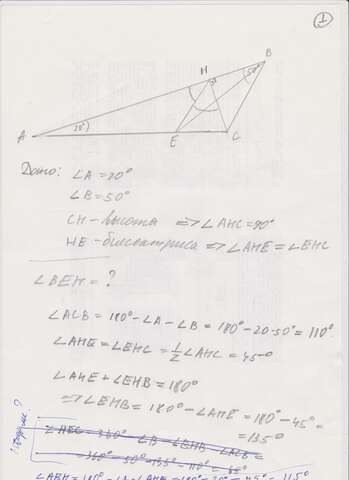 1
B
H
50°
A
20°
E
C
Дано: ∠A=20°
∠B=50°
CH - высота => ∠AHC=90°
HE - биссектриса => ∠AHE=∠EHC
∠BEH = ?
∠ACB = 180° - ∠A - ∠B = 180° - 20 - 50° = 110°
∠AHE = ∠EHC = 1/2 ∠AHC = 45°
∠AHE + ∠EHB = 180°
=> ∠EHB = 180° - ∠AHE = 180° - 45° =
= 135°
∠HEC = 360° - ∠B - ∠EHB - ∠ACB =
= 360° - 50° - 135° - 110° = 65°